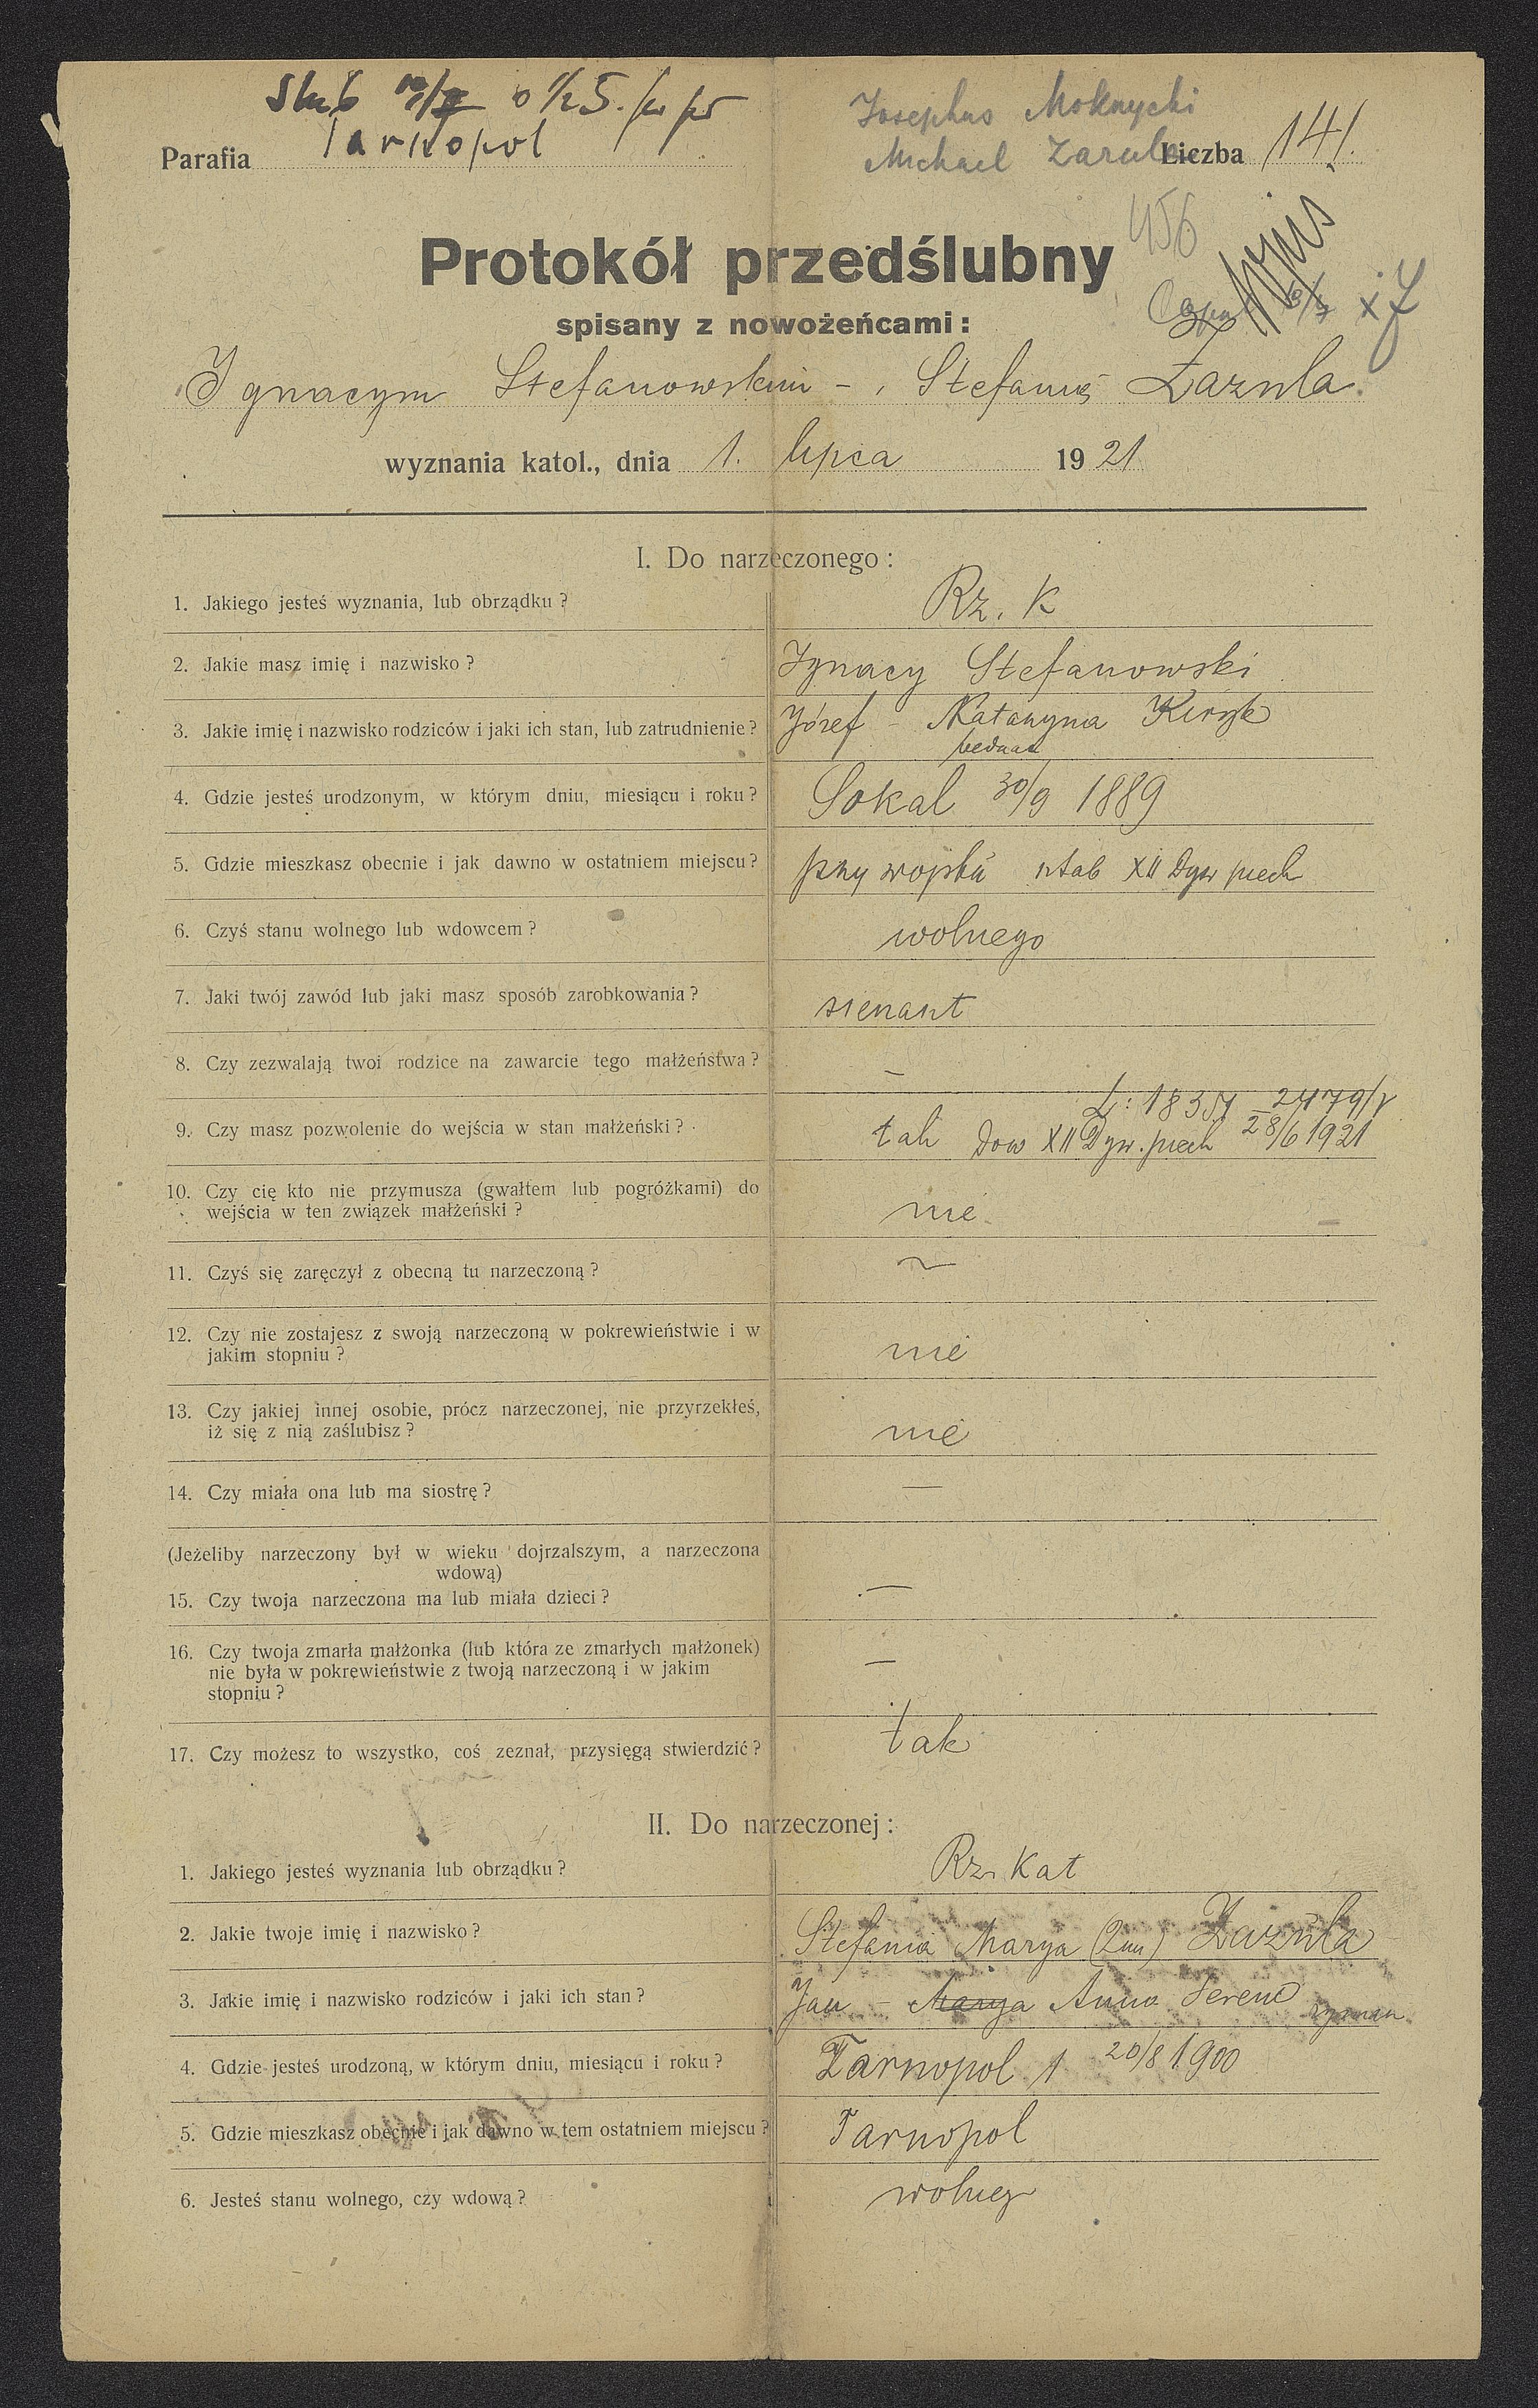 Ślub o ½ 5. po
Josephus Moknycki
Parafia Tarnopol
Michael Zazula Liczba 141.
456
Protokół przedślubny
spisany z nowożeńcami:
Ignacym Stefanowskim - Stefanią Zazula
wyznania katol., dnia 1. lipca 1921
I. Do narzeczonego:
1. Jakiego jesteś wyznania, lub obrządku? Rz. K
2. Jakie masz imię i nazwisko? Ignacy Stefanowski
3. Jakie imię i nazwisko rodziców i jaki ich stan, lub zatrudnienie? Józef - Katarzyna
bednarz
4. Gdzie jesteś urodzonym, w którym dniu, miesiącu i roku? Sokal 30/9 1889
5. Gdzie mieszkasz obecnie i jak dawno w ostatniem miejscu? przy wojsku sztab XII Dyw piech
6. Czyś stanu wolnego lub wdowcem? wolnego
7. Jaki twój zawód lub jaki masz sposób zarobkowania? sierżant
8. Czy zezwalają twoi rodzice na zawarcie tego małżeństwa? –
9. Czy masz pozwolenie do wejścia w stan małżeński? tak Dow XII Dyw. piech 28/6 1921
10. Czy cię kto nie przymusza (gwałtem lub pogróżkami) do
wejścia w ten związek małżeński? nie
11. Czyś się zaręczył z obecną tu narzeczoną? ~
12. Czy nie zostajesz z swoją narzeczoną w pokrewieństwie i w
jakim stopniu? nie
13. Czy jakiej innej osobie, prócz narzeczonej, nie przyrzekłeś,
iż się z nią zaślubisz? nie
14. Czy miała ona lub ma siostrę? –
(Jeżeliby narzeczony był w wieku dojrzalszym, a narzeczona
wdową)
15. Czy twoja narzeczona ma lub miała dzieci? –
16. Czy twoja zmarła małżonka (lub która ze zmarłych małżonek)
nie była w pokrewieństwie z twoją narzeczoną i w jakim
stopniu? –
17. Czy możesz to wszystko, coś zeznał, przysięgą stwierdzić? tak
II. Do narzeczonej:
1. Jakiego jesteś wyznania lub obrządku? Rz. Kat
2. Jakie twoje imię i nazwisko? Stefania Marya (2im) Zazula
3. Jakie imię i nazwisko rodziców i jaki ich stan? Jan - Marya Anna
4. Gdzie jesteś urodzoną, w którym dniu, miesiącu i roku? Tarnopol 20/8 1900
5. Gdzie mieszkasz obecnie i jak dawno w tem ostatniem miejscu? Tarnopol
6. Jesteś stanu wolnego, czy wdową? wolnego